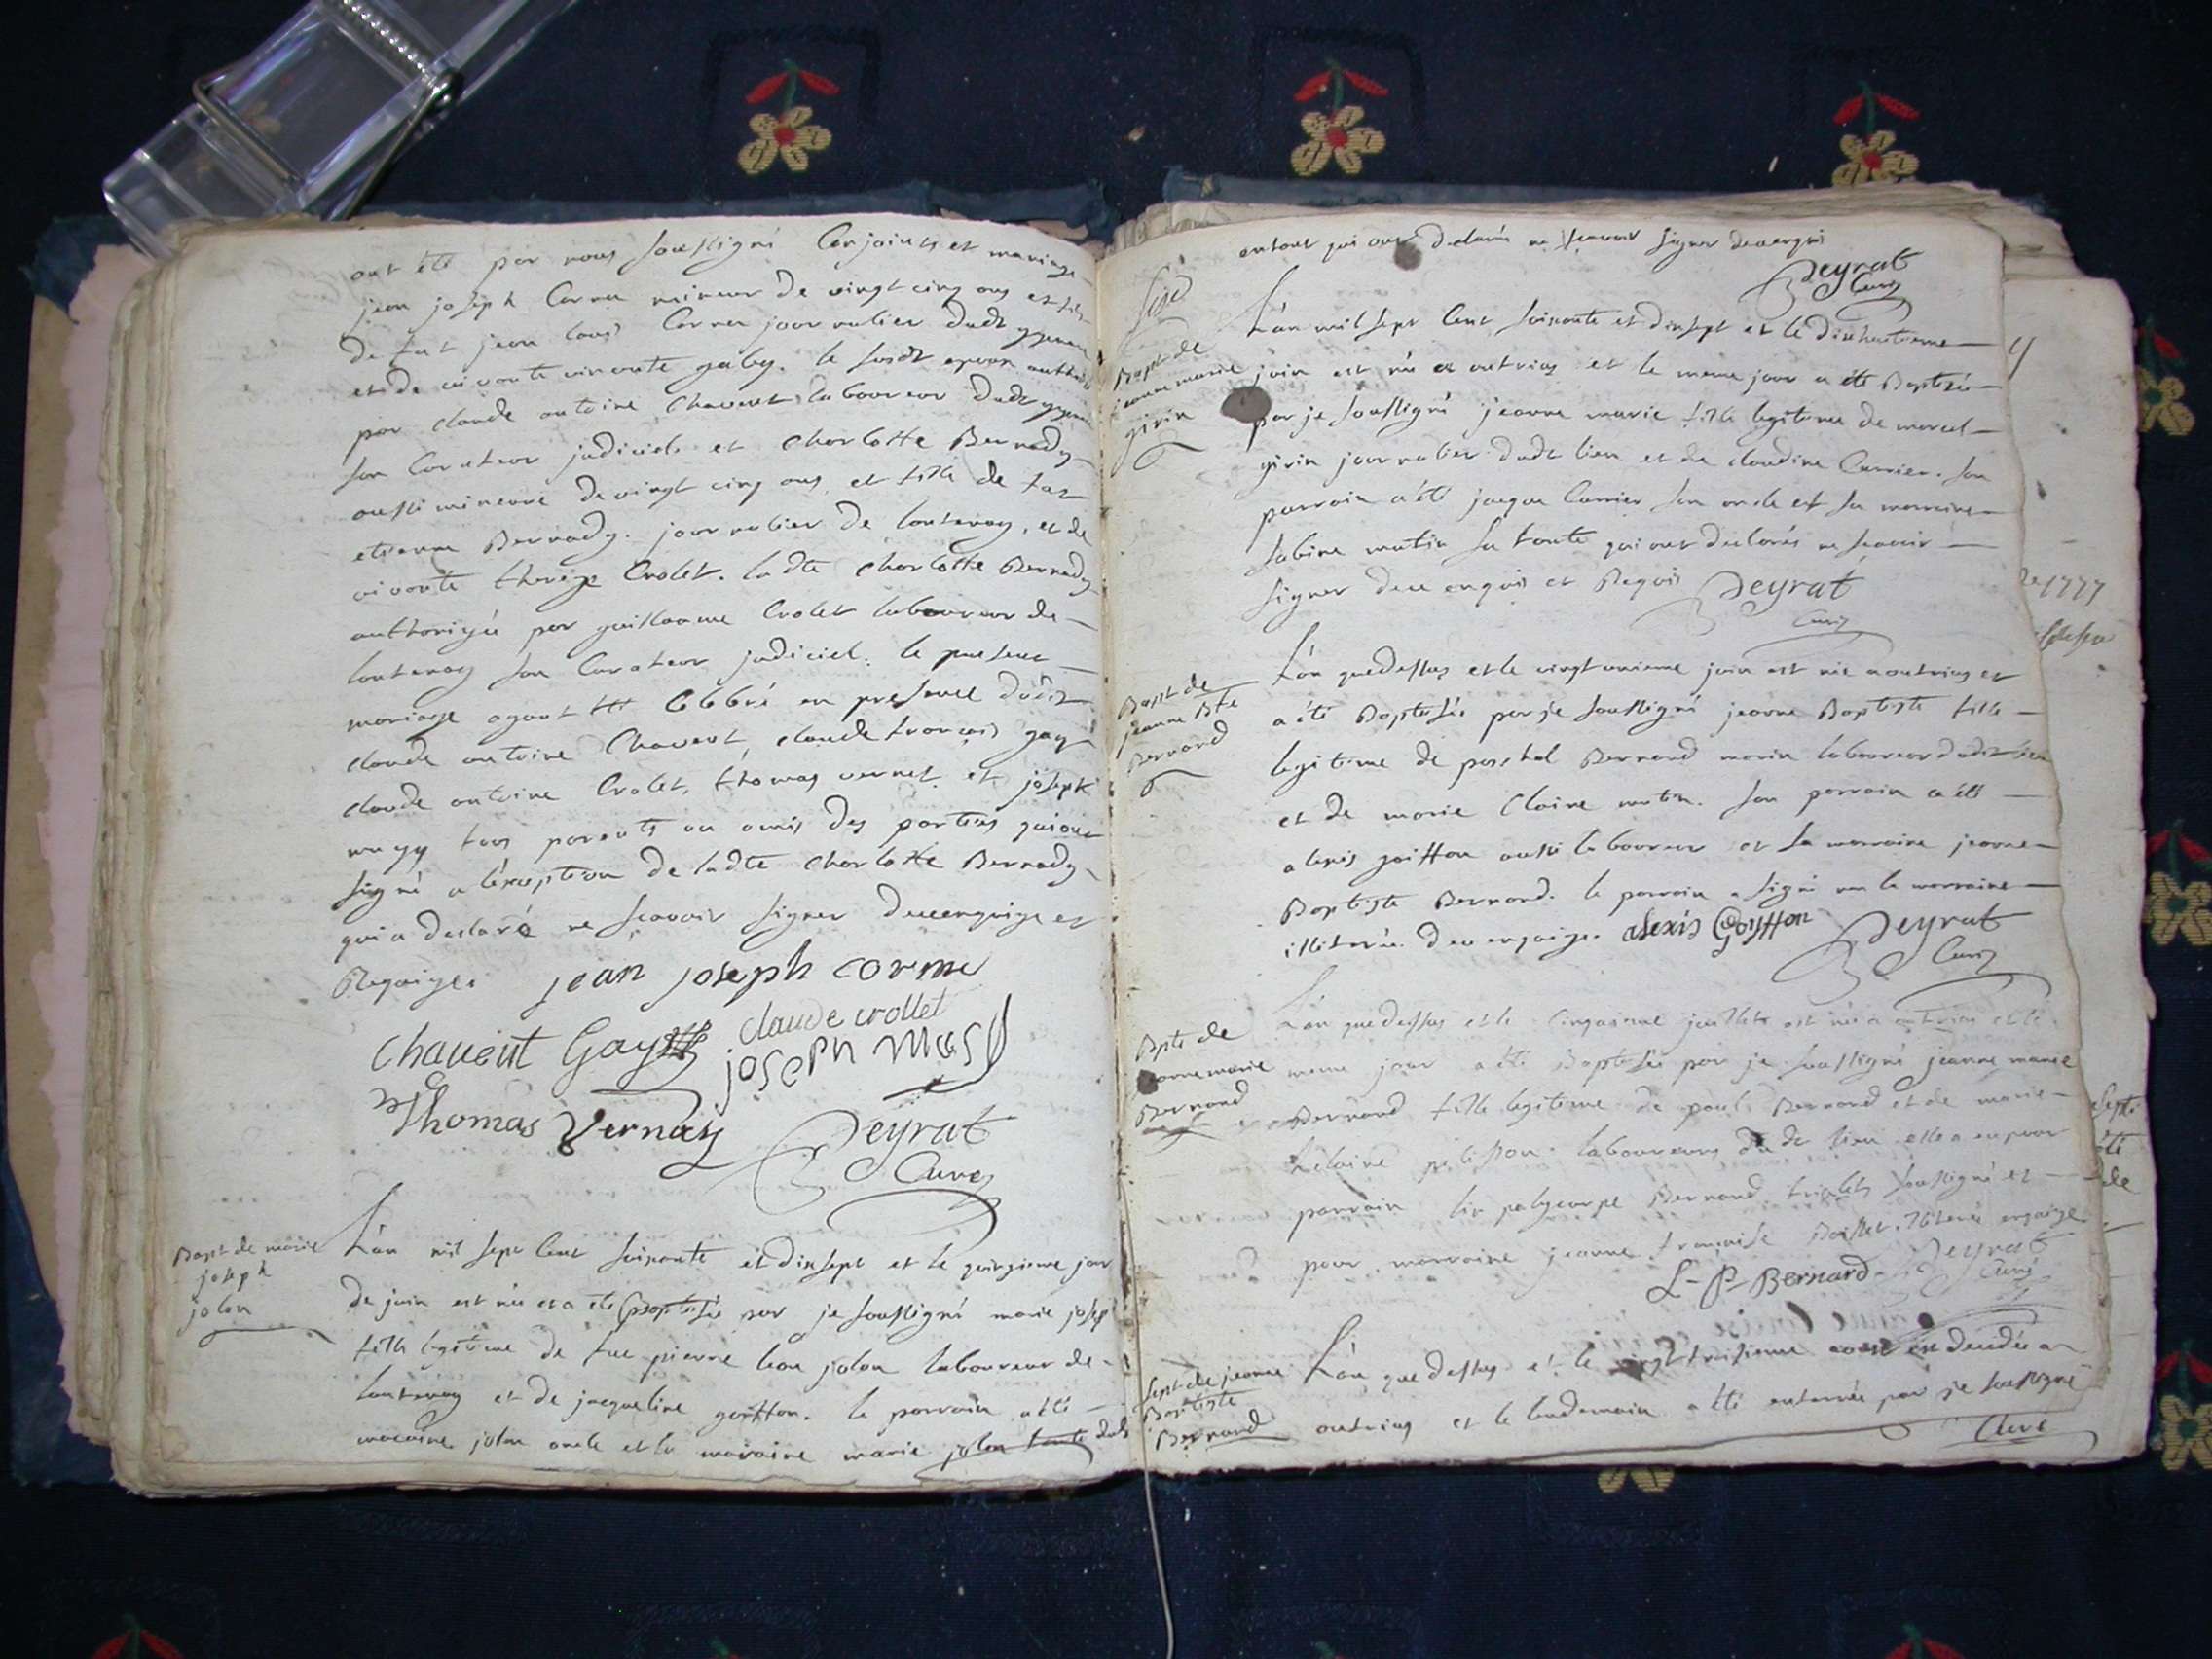 ont été par nous soussigné Conjoints et mariage
jean joseph Corne mineur de vingt cinq ans et fils
de fut jean louis Corne journalier dudt
et de vivante vincente gaby. le susdt epoux authorisé
par claude antoine Chavent laboureur dudt
son Curateur judiciel. et Charlotte Bernady
aussi mineure de vingt cinq ans et fille de fut
etienne Bernady. journalier de lontenay, et de
vivante thereze Crolet. ladte charlotte Bernady
authorizée par guillaume Crolet laboureur de
lontenay son Curateur judiciel. le present
mariage ayant été Célébré en presence dudit
claude antoine Chavent, claude francois gay
claude antoine Crolet, thomas vernet et joseph
mugy tous parents ou amis des parties qui ont
signé a léxception de ladte charlotte Bernady
qui a declaré ne sçavoir signer deuenquise et
Requise. jean joseph corne
Chavent Gay claude crollet
joseph
Thomas Vernay Deyrat
Curé
Bapt de marie
joseph
jolon
L'an mil sept Cent soixante et dixsept et le quinzieme jour
de juin est née et a été Baptisée par je soussigné marie joseph
fille legitime de feu pierre leon jolon laboureur de
lontenay et de jacqueline goiffon. le parrain a été
jolon oncle et la maraine marie jolon tante
ont qui ont declaré ne sçavoir signer deuenquis
Deyrat
Curé
Bapt de
jeanne marie
girin
L'an mil sept Cent soixante et dixsept et le dixhuitieme
juin est née a outriaz et le meme jour a été Baptisée
par je soussigné jeanne marie fille legitime de marcel
girin journalier dudt lieu et de claudine Carrier. son
parrain a été jacque Carrier son oncle et sa marraine
sabine mutin sa tante qui ont declarés ne sçavoir
signer deue enquis et Requis Deyrat
Curé
Bapt de
jeanne Bte
Bernard
L'an que dessus et le vingt unieme juin est née a outriaz et
a été Baptisée par je soussigné jeanne Baptiste fille
legitime de paschal Bernard morin laboureur dudit lieu
et de marie Claire mutin. son parrain a été
alexis goiffon aussi laboureur et la marraine jeanne
Baptiste Bernard. le parrain a signé non la marraine
illiterée deu enquise. alexis Goiffon Deyrat
Curé
Bpte de
jeanne marie
Bernard
L'an que dessus et le Cinquieme juillet est née a outriaz et le
meme jour a été Baptisée par je soussigné jeanne marie
Bernard fille legitime de paul Bernard et de marie
helaine pelisson. laboureurs du dt lieu elle a eu pour
parrain lin polycarpe Bernard soussigné et
pour marraine jeanne françoise enquise
L-P-Bernard Deyrat
Curé
Sept de jeanne
Baptiste
Bernard
L'an que dessus et le vingt troisieme aoust est decedée a
outriaz et le lendemain a été enterrée par je soussigné
Curé
1777